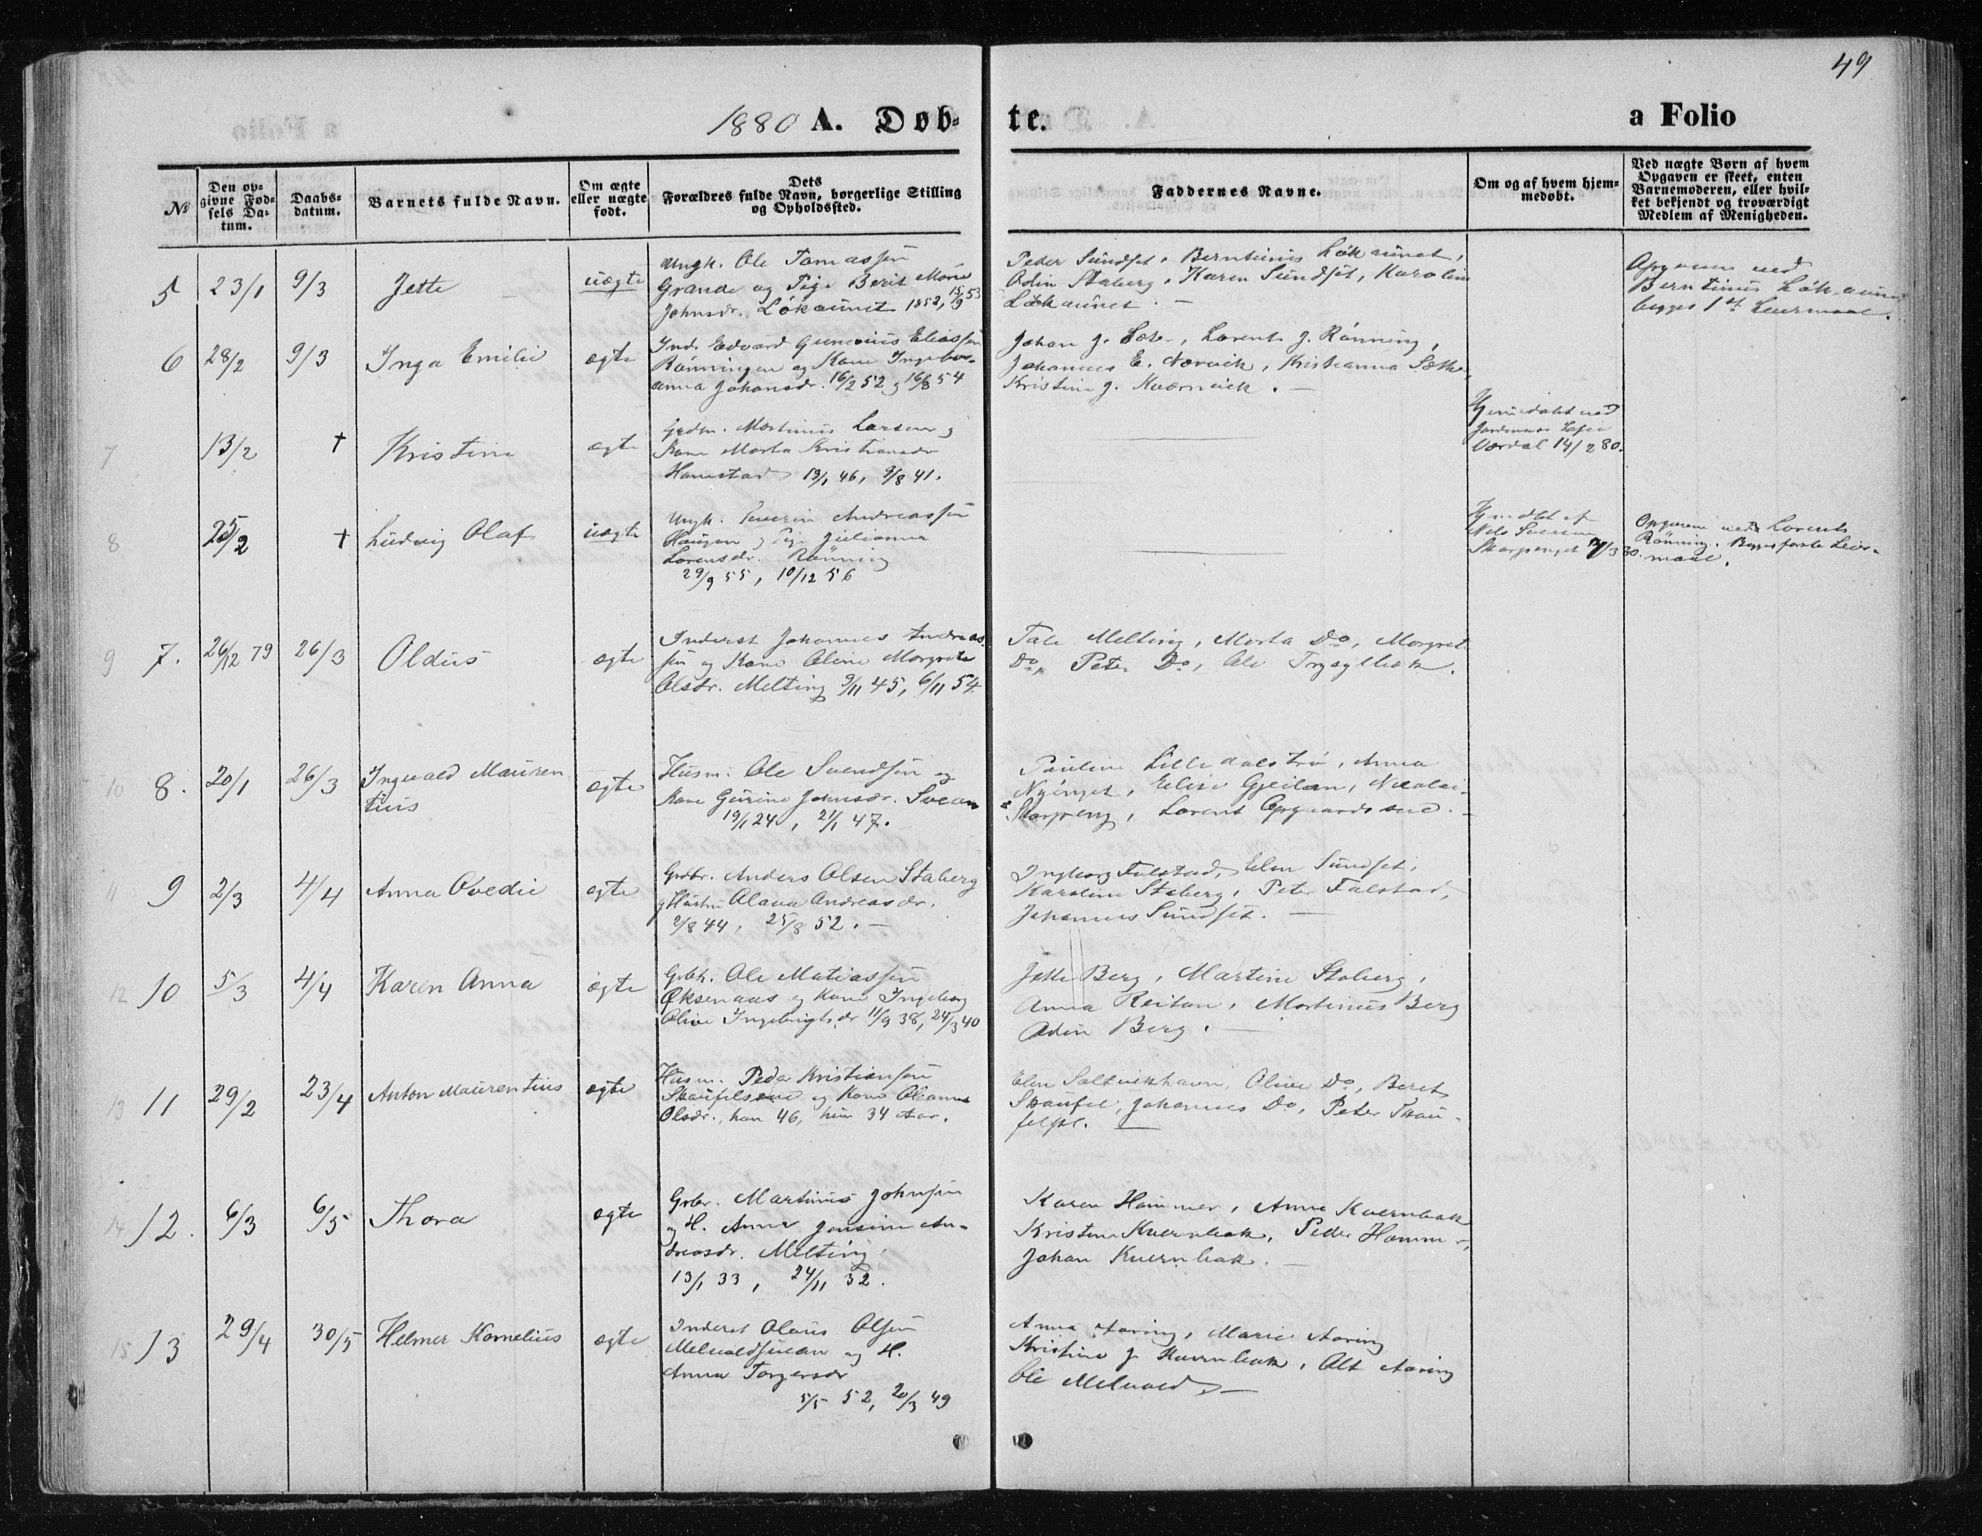 49
1880 A. Døb-
te.
a Folio
№
Den op-
givne Fød-
sels Da-
tum.
Daabs-
datum.
Barnets fulde Navn.
Om ægte
eller uægte
født.
Dets
Forældres fulde Navn, borgerlige Stilling
og Opholdssted.
Faddernes Navne.
Om og af hvem hjem-
medøbt.
Ved uægte Børn af hvem
Opgaven er skeet, enten
Barnemoderen, eller hvil-
ket bekjendt og troværdigt
Medlem af Menigheden.
5
23/1
9/3
Jette
uægte
Ungk. Ole Tomassen
Grande og Pige Berit Marie
Johnsdr. Løkaunet 1852, 15/9 53
Peder Sundset, Berntinus Løkaunet,
Odin Staberg, Karen Sundset, Karolin
Løkaunet. —
Opgaven ved
Berntinus Løkaunet
begges 1ste Leiermaal.
6
28/2
9/3
Inga Emilie
ægte
Ind. Edvard Gunerius Eliassen
Rønningen og Kone Ingebor-
anna Johansdr. 16/2 52 og 16/8 54
Johan J. Sæte, Lorents J. Rønning,
Johannes E. Nærvik, Kristianna Sæthe,
Kristine J. Kværnvik. —
7
13/2
†
Kristine
ægte
Grdm. Martinus Larsen og
Kone Marta Kristiansdr
Hamstad 13/1 46, 9/8 41.
Hjemmedøbt ved
Jordmoder
Værdal 14/2 80.
8
25/2
†
Ludvig Olaf
uægte
Ungk. Severin Andreassen
Haugan og Pige Julianna
Lorensdr. Rønning
29/9 55, 10/12 56
Hjmdøbt af
Nils
Skarpenget /3 80.
Opgaven ved Lorents
Rønning. Begges første Leier-
maal.
9
7.
26/12 79
26/3
Oldus
ægte
Inderst Johannes Andreas-
sen og Kone Oline Margreta
Olsdr. Melting 9/11 45, 6/11 54
Tale Melting, Marta Do, Margret
Do, Peter Do, Ole Trygstbak.
10
8.
20/1
26/3
Ingvald Mauren-
tius
ægte
Husm. Ole Svendsen og
Kone Gurine Johnsdr. Svean
19/1 24, 21/1 47.
Pauline Lilledalstrø, Anna
Nyenget, Elise Gjeilan, Nicolai
Skarpeng, Lorent Opgaards. —
11
9
2/3
4/4
Anna Ovedie
ægte
Grdbr. Anders Olsen Staberg
og Hustru Olava Andreasdr.
2/8 44, 25/8 52. —
Ingeborg Falstad, Elen Sundset,
Karoline Staberg, Peter Falstad,
Johannes Sundset. —
12
10
5/3
4/4
Karen Anna
ægte
Grbr. Ole Matiassen
Øksenaas og Kone Ingeborg
Oline Ingebrigtsdr 11/9 38, 24/3 40
Jette Berg, Martine Staberg,
Anna Reitan, Martinus Berg
Odin Berg. —
13
11
29/2
23/4
Anton Maurentius
ægte
Husm. Peder Kristiansen
Skaufelsene og Kone Oleanna
Olsdr., han 46, hun 34 Aar.
Elen Saltvikhavn, Oline Do, Beret
Skaufel, Johannes Do, Peter Skau-
14
12.
6/3
6/5
Thora
ægte
Grbr. Martinus Johnsen
og H. Anna Jonsine An-
dreasdr. Melting.
13/1 33, 24/11 32.
Karen Hammer, Anne Kvernbak
Kristine Kvernbak, Peder Hammer,
Johan Kvernbak. —
15
13
29/4
30/5
Helmer Kornelius
ægte
Inderst Olaus Olsen
Melvaldsvean og H.
Anna Torgersdr
5/5 52, 20/3 49
Anna Aaring, Marie Aaring
Kristine J. Kvernbak, Olt Aaring
Ole Melvald —